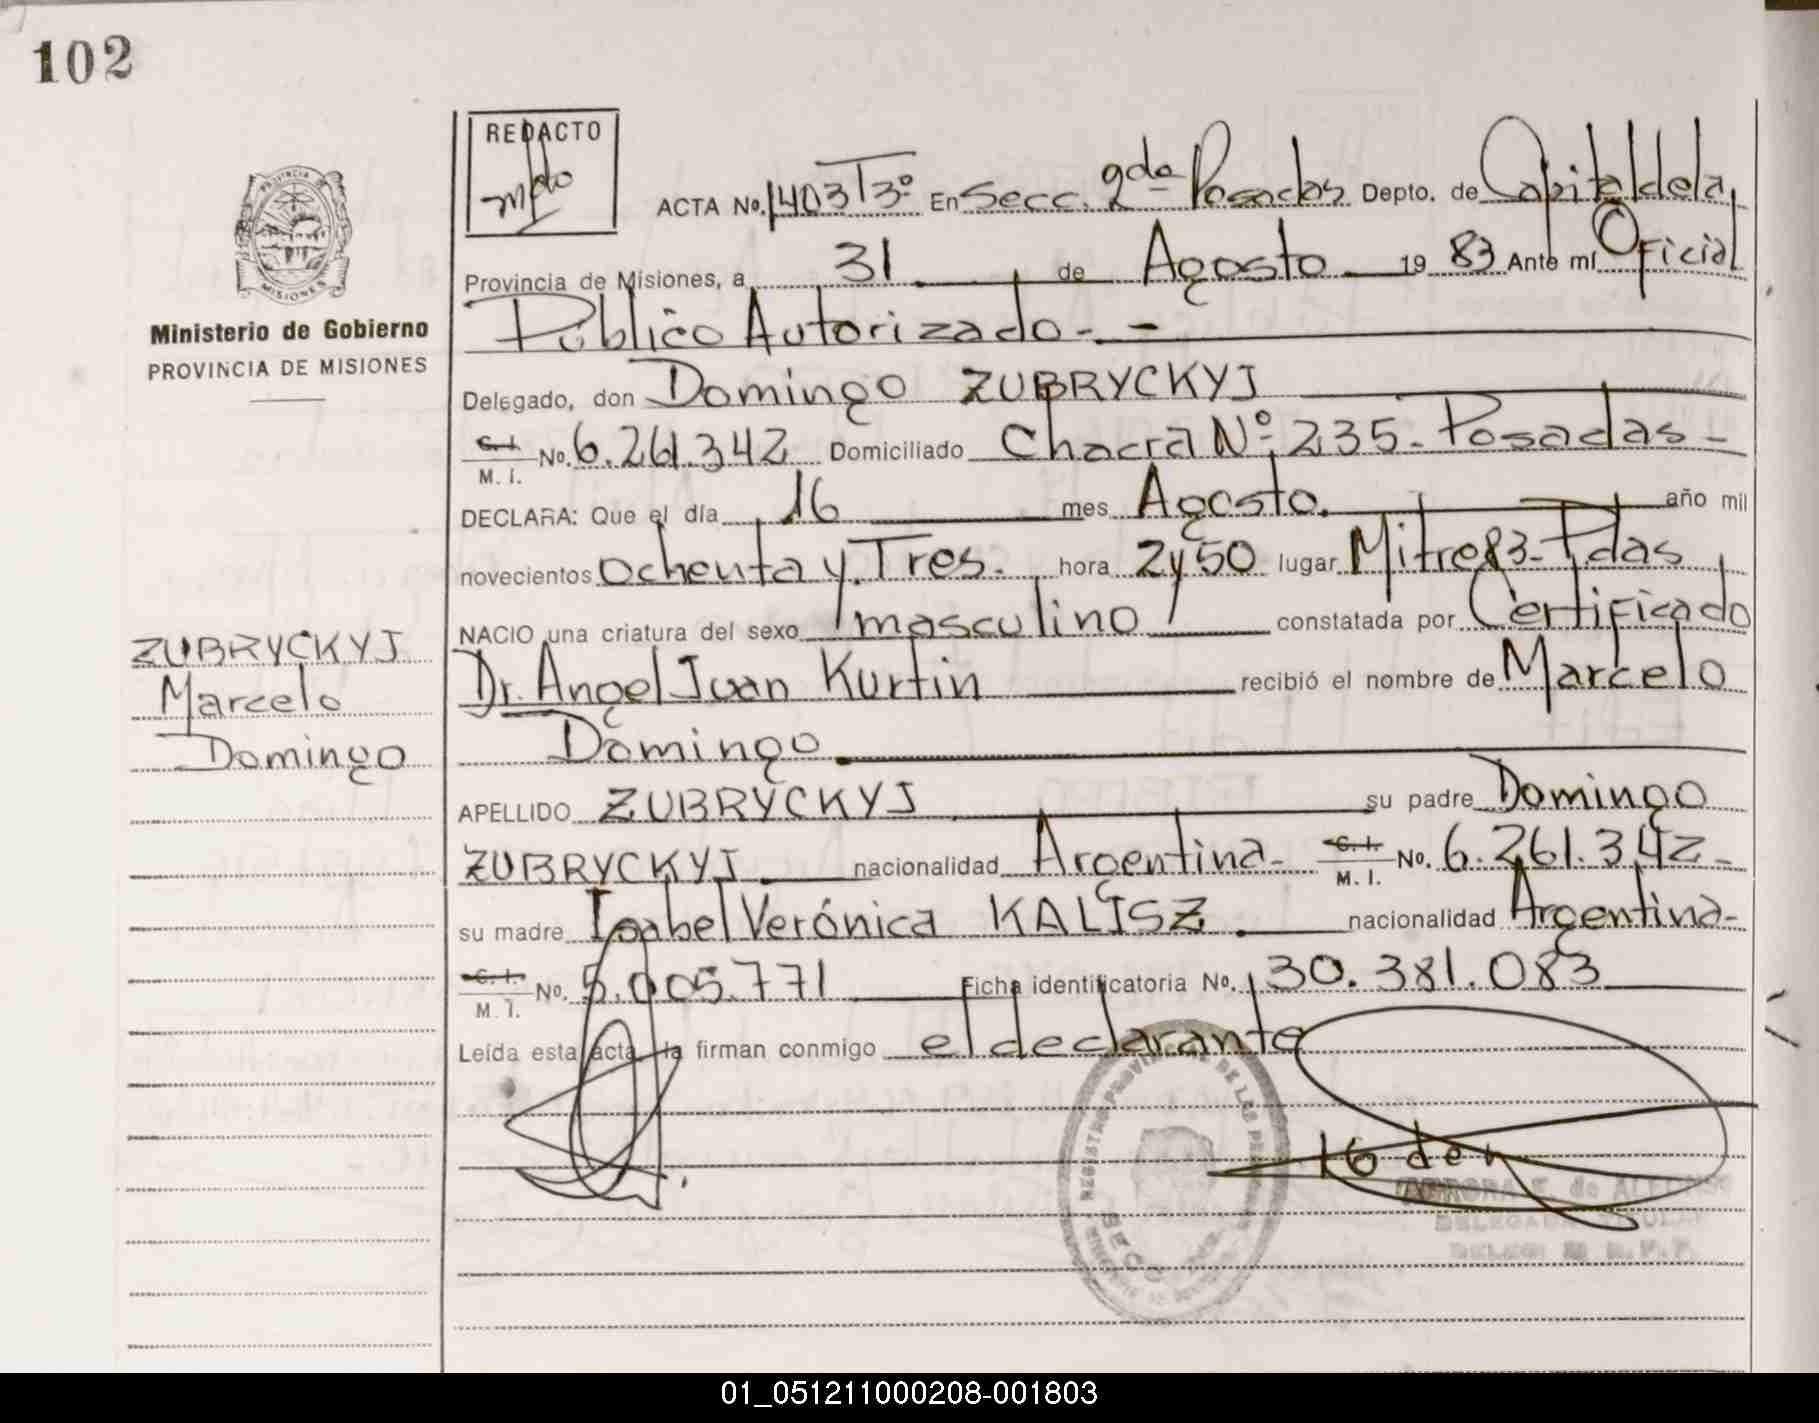 102
REDACTO
PROVINCIA DE
MISIONES
Ministerio de Gobierno
PROVINCIA DE MISIONES
ACTA No. 1403 T3º En Secc. 2da Posadas Depto. de Capital de la
Provincia de Misiones, a 31 de Agosto 1983 Ante mí Oficial
Público Autorizado.-
Delegado, don Domingo ZUBRYCKYJ
C.I.
M. I. No. 6.261.342 Domiciliado Chacra Nº 235- Posadas-
DECLARA: Que el día 16 mes Agosto. año mil
novecientos ochenta y Tres. hora 2y50 lugar Mitre 83- Pdas
NACIO una criatura del sexo masculino constatada por Certificado
Dr. Angel Juan Kurtin recibió el nombre de Marcelo
Domingo
ZUBRYCKYJ
Marcelo
Domingo
APELLIDO ZUBRYCKYJ su padre Domingo
ZUBRYCKYJ nacionalidad Argentina- C.I. M. I. No. 6.261.342-
su madre Isabel Verónica KALISZ nacionalidad Argentina-
C.I.
M. I. No. 5.005.771 Ficha identificatoria No. 30.381.083
Leída esta acta, la firman conmigo el declarante
REGISTRO PROVINCIAL DE LAS PERSONAS
DELEGADA TITULAR
01_051211000208-001803